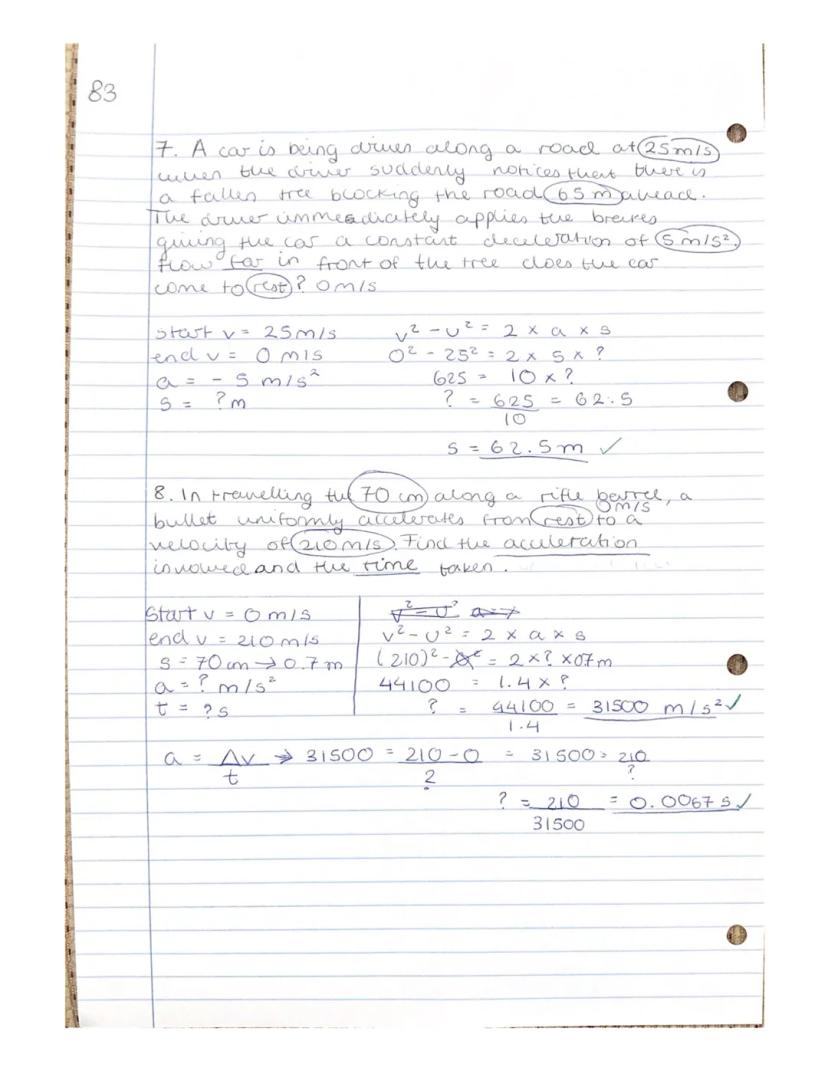 83
7. A car is being driven along a road at 25m/s
when the driver suddenly notices that there is
a fallen tree blocking the road 65m ahead.
The driver immeadiately applies the brakes
giving the car a constant deceleration of 5m/s².
How far in front of the tree does the car
come to rest? 0m/s
start v = 25m/s
end v = 0 m/s
a = - 5 m/s²
s = ? m
v² - u² = 2 x a x s
0² - 25² = 2 x 5 x ?
625 = 10 x ?
? = 625/10 = 62.5
s = 62.5m ✓
8. In travelling the 70 cm along a rifle barrel, a
0m/s
bullet uniformly accelerates from rest to a
velocity of 210m/s. Find the acceleration
involved and the time taken.
Start v = 0m/s
end v = 210m/s
s = 70cm → 0.7m
a = ? m/s²
t = ? s
v² - u² = 2 x a x s
(210)² - 0² = 2 x ? x 07m
44100 = 1.4 x ?
? = 44100/1.4 = 31500 m/s² ✓
a = Δv/t → 31500 = 210-0/? = 31500 = 210/?
? = 210/31500 = 0.0067s ✓